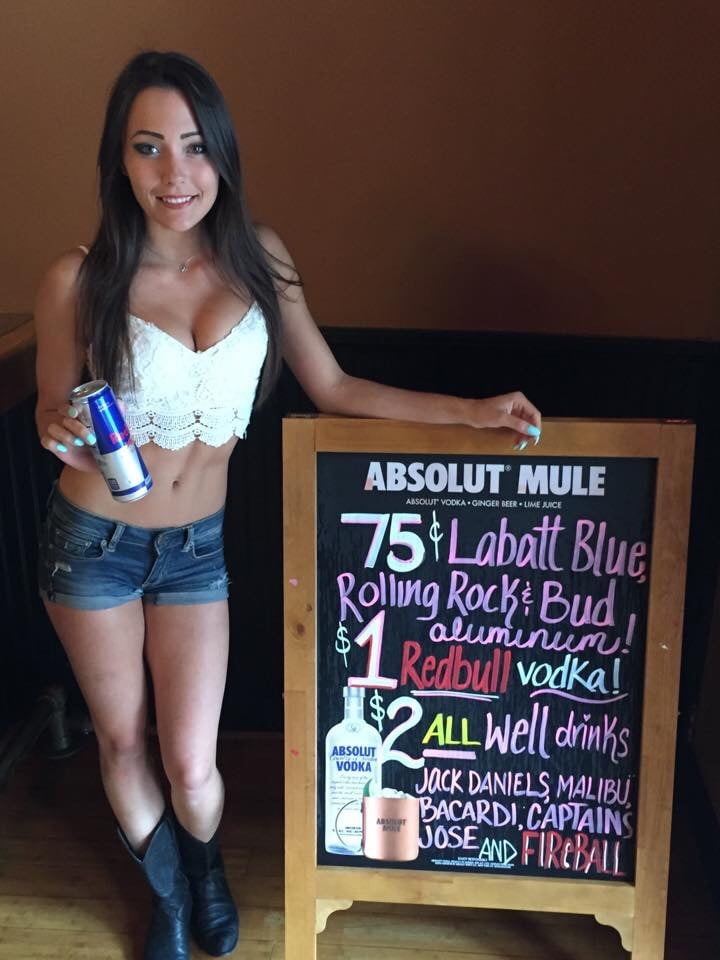 ABSOLUT® MULE
ABSOLUT® VODKA • GINGER BEER • LIME JUICE
75¢ Labatt Blue,
Rolling Rock & Bud
aluminum!
$1 Redbull vodka!
$2 ALL Well drinks
JACK DANIELS, MALIBU,
BACARDI, CAPTAINS
JOSE AND FIREBALL
ABSOLUT
VODKA
ABSOLUT
MULE